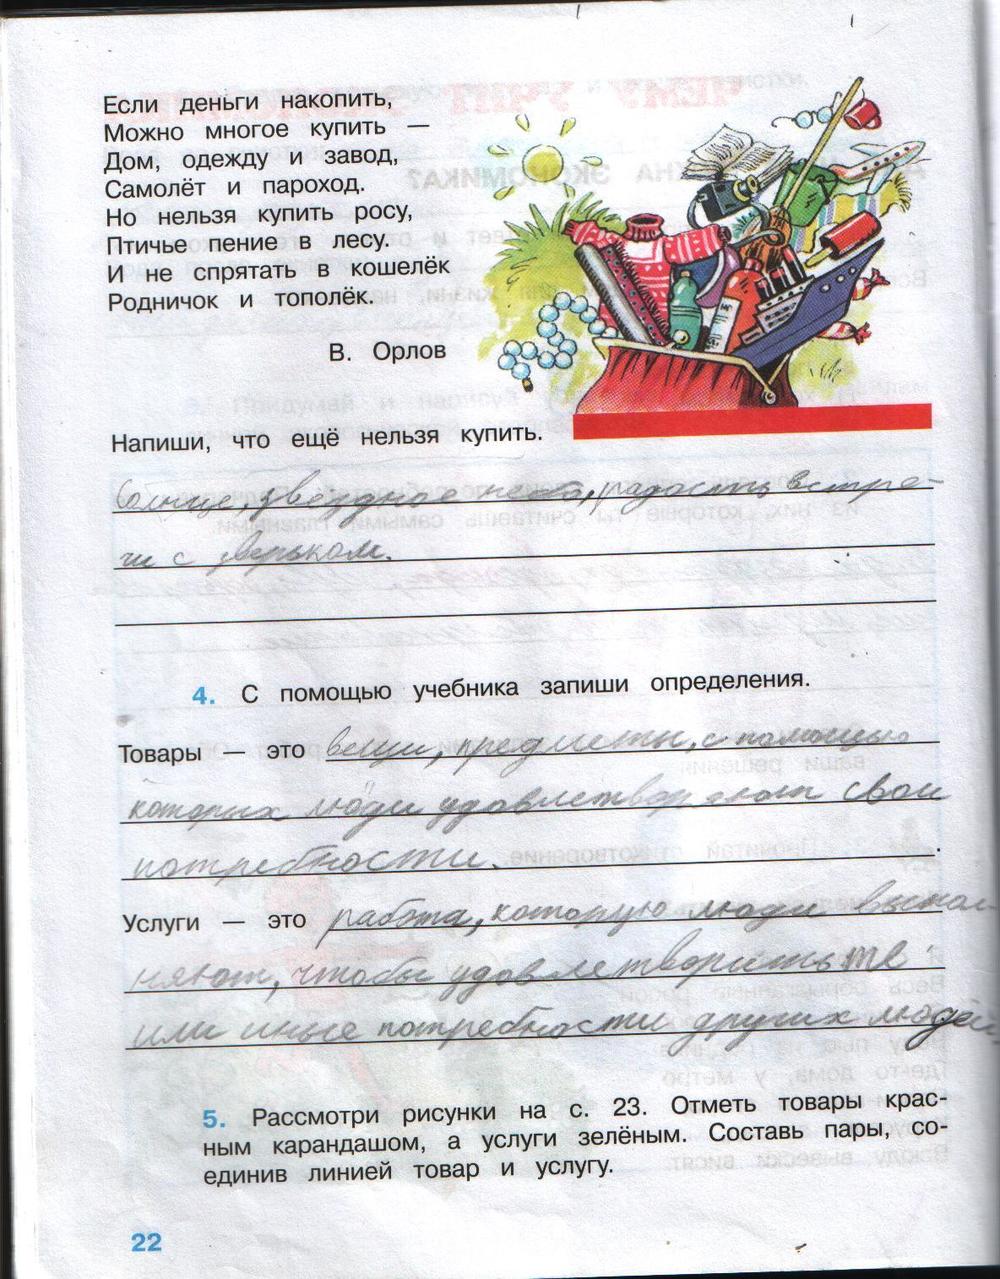 Если деньги накопить,
Можно многое купить —
Дом, одежду и завод,
Самолёт и пароход.
Но нельзя купить росу,
Птичье пение в лесу.
И не спрятать в кошелёк
Родничок и тополёк.
В. Орлов
Напиши, что ещё нельзя купить.
Солнце, звёздное небо, радость встре-
чи с зверьком.
4. С помощью учебника запиши определения.
Товары — это вещи, предметы, с помощью
которых люди удовлетворяют свои
потребности.
Услуги — это работа, которую люди выпол
няют, чтобы удовлетворить те
или иные потребности других людей.
5. Рассмотри рисунки на с. 23. Отметь товары крас-
ным карандашом, а услуги зелёным. Составь пары, со-
единив линией товар и услугу.
22